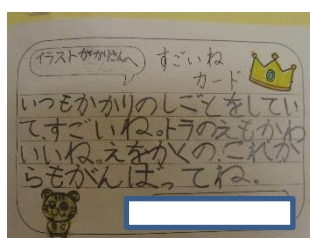 イラストがかりさんへ
すごいね
カード
いつもかかりのしごとをしてい
て、すごいね。トラのえもかわ
いいね。えをかくの、これか
らもがんばってね。